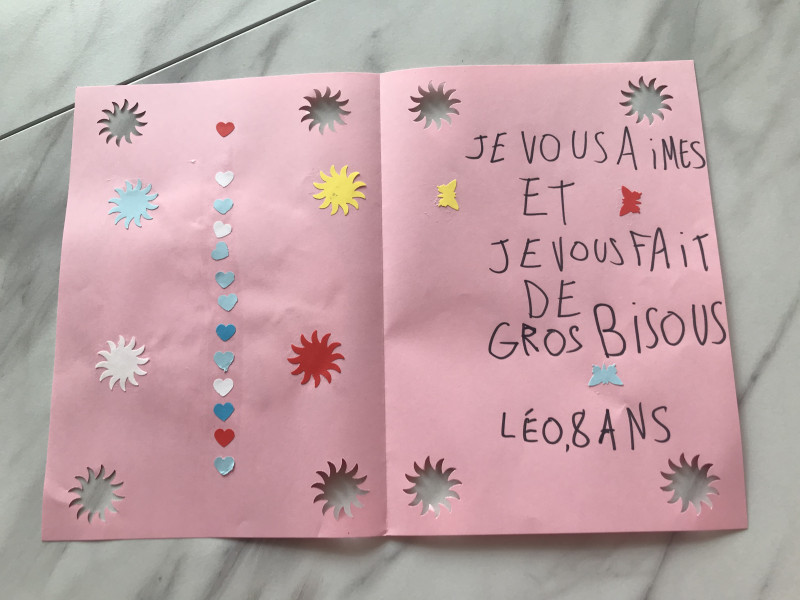 JE VOUS AiMES
ET
JE VOUS FAiT
DE
GROS BiSOUS
LÉO, 8 ANS